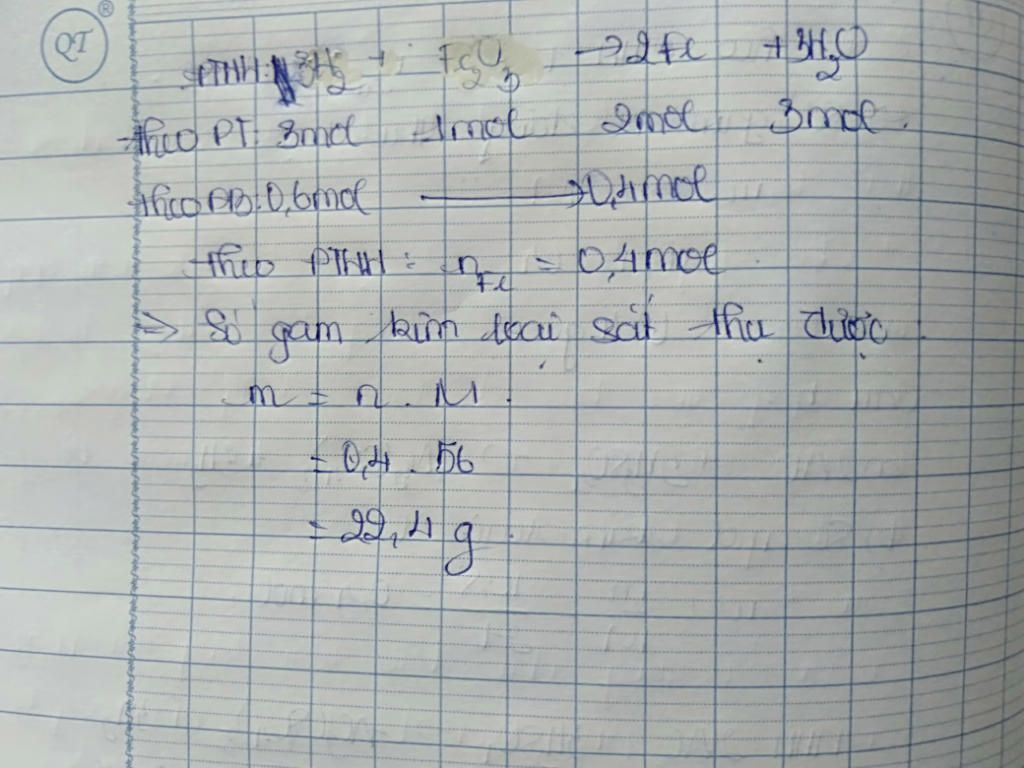 QT ®
PTHH: 3H₂ + Fe₂O₃ → 2Fe + 3H₂O
theo PT: 3mol 1mol 2mol 3mol.
theo ĐB: 0,6mol → 0,4mol
theo PTHH: nFe = 0,4mol
=> Số gam kim loại sắt thu được
m = n . M .
= 0,4 . 56
= 22,4 g